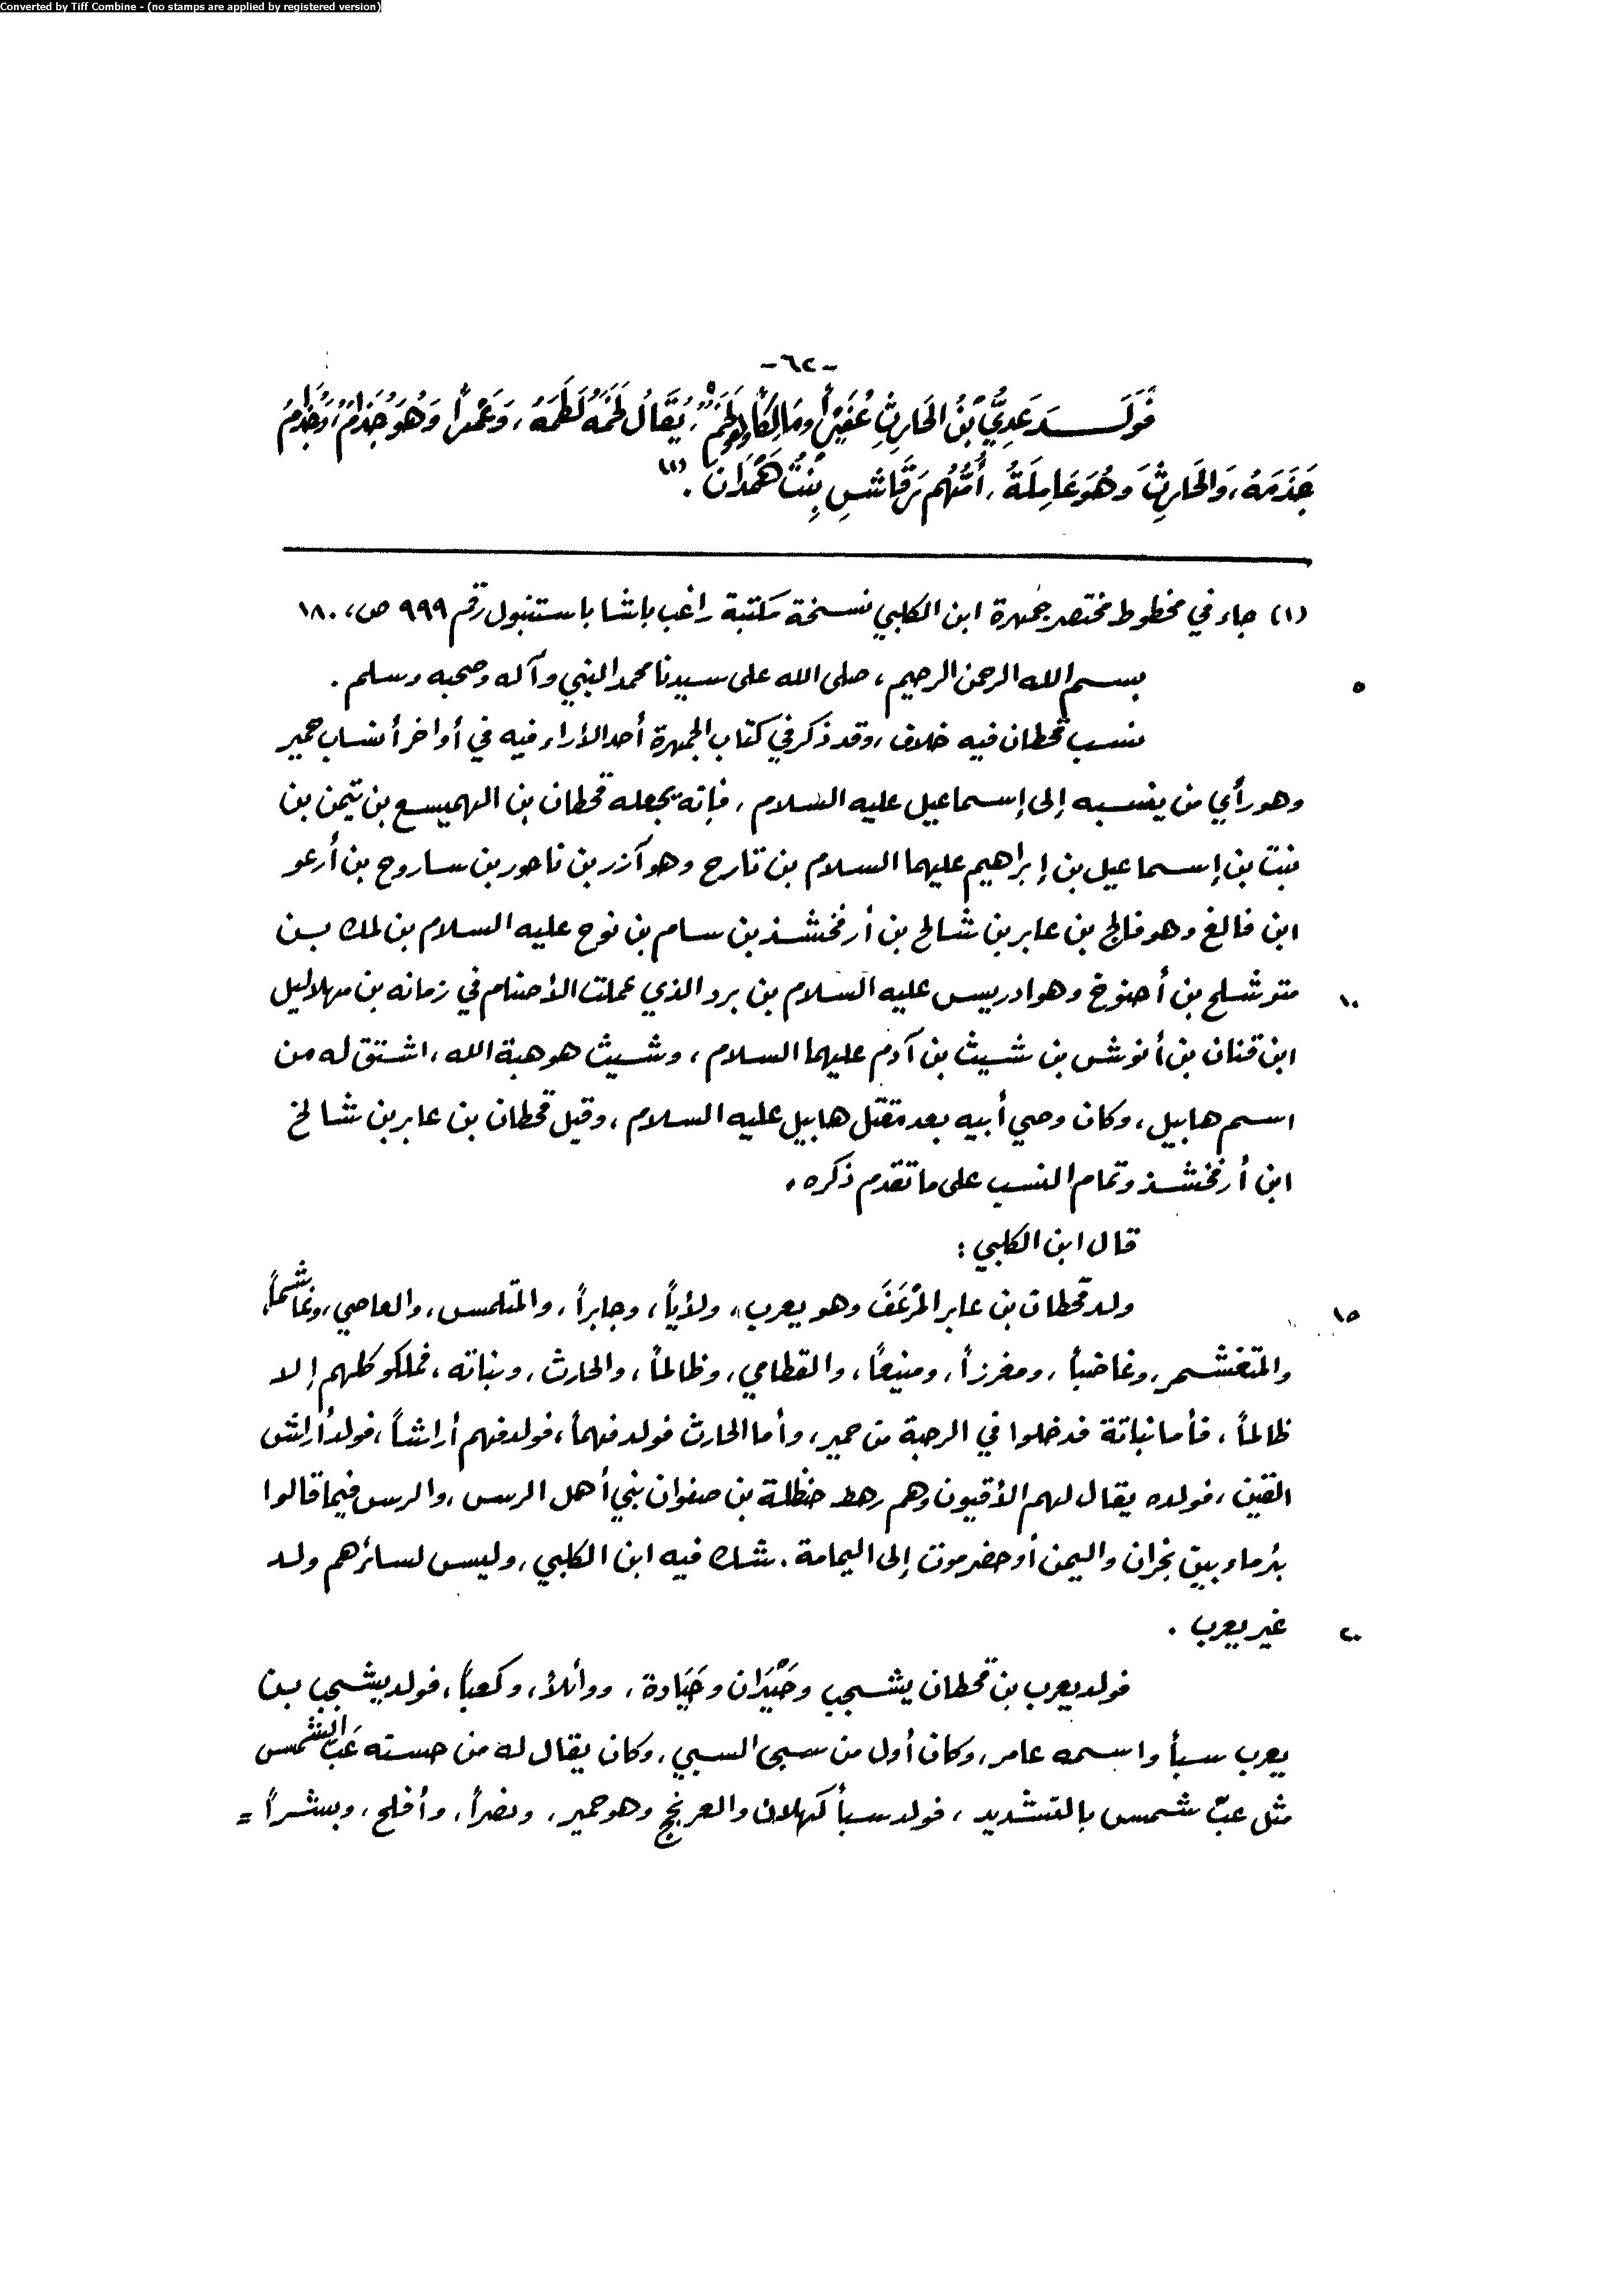 Converted by Tiff Combine - (no stamps are applied by registered version)
-٦٢-
فَوَلَــدَ عَدِيُّ بْنُ الحَارِثِ عُفَيْراً وَمَالِكاً وَهُوَ لَخْمٌ، يُقَالُ لَخَمَهُ لَطَمَهُ، وَعَمْراً وَهُوَ جُذَامُ، وَجُذِمَ
جَذَمَهُ، وَالحَارِثَ وَهُوَ عَامِلَةُ، أُمُّهُم رَقَاشِ بِنْتُ هَمْدَانَ. (١)
(١) جاء في مخطوط مختصر جمهرة ابن الكلبي نسخة مكتبة راغب باشا باستنبول رقم ٩٩٩ ص، ١٨٠
بسم الله الرحمن الرحيم، صلى الله على سيدنا محمد النبي وآله وصحبه وسلم. ٥
نسب قحطان فيه خلاف، وقد ذكر في كتاب الجمهرة أحد الأراء فيه في أواخر أنساب حمير
وهو رأي من ينسبه إلى إسماعيل عليه السلام، فإنه يجعله قحطان بن الهميسع بن تيمن بن
نبت بن إسماعيل بن إبراهيم عليهما السلام بن تارح وهو آزر بن ناحور بن ساروح بن أرعو
ابن فالغ وهو فالج بن عابر بن شالخ بن أرفخشذ بن سام بن نوح عليه السلام بن لمك بــن
متوشلح بن أحنوخ وهو ادريس عليه السلام بن برد الذي عملت الأصنام في زمانه بن مهلاليل ١٠
ابن قنان بن أنوش بن شيث بن آدم عليهما السلام، وشيث هو هبة الله، اشتق له من
اسم هابيل، وكان وصي أبيه بعد مقتل هابيل عليه السلام، وقيل قحطان بن عابر بن شالخ
ابن أرفخشذ وتمام النسب على ما تقدم ذكره.
قال ابن الكلبي:
ولد قحطان بن عابر المُرْعَفَ وهو يعرب، ولأياً، وجابراً، والمتلمس، والعاصي، وغاشماً، ١٥
والمتغشمر، وغاضباً، ومغرزاً، ومنيعاً، والقطامي، وظالماً، والحارث، ونباته، فملكو كلهم إلا
ظالماً، فأما نباتة فدخلوا في الرحبة من حمير، وأما الحارث فولد فهماً، فولد فهم أراشاً، فولد أراش
القين، فولده يقال لهم الأقيون وهم رهط حنظلة بن صفوان نبي أهل الرس، والرس فيما قالوا
بئر ماء بين نجران واليمن أو حضرموت إلى اليمامة. شك فيه ابن الكلبي، وليس لسائرهم ولد
غير يعرب. ٢٠
فولد يعرب بن قحطان يشجب وحَيْدَان وحَيَادة، ووائلاً، وكعباً، فولد يشجب بن
يعرب سبأ واسمه عامر، وكان أول من سبى السبي، وكان يقال له من حسنه عَبّ الشمس
مثل عبّ شمس بالتشديد، فولد سبأ كهلان والعرنجج وهو حمير، ونصراً، وأفلح، وبشراً =